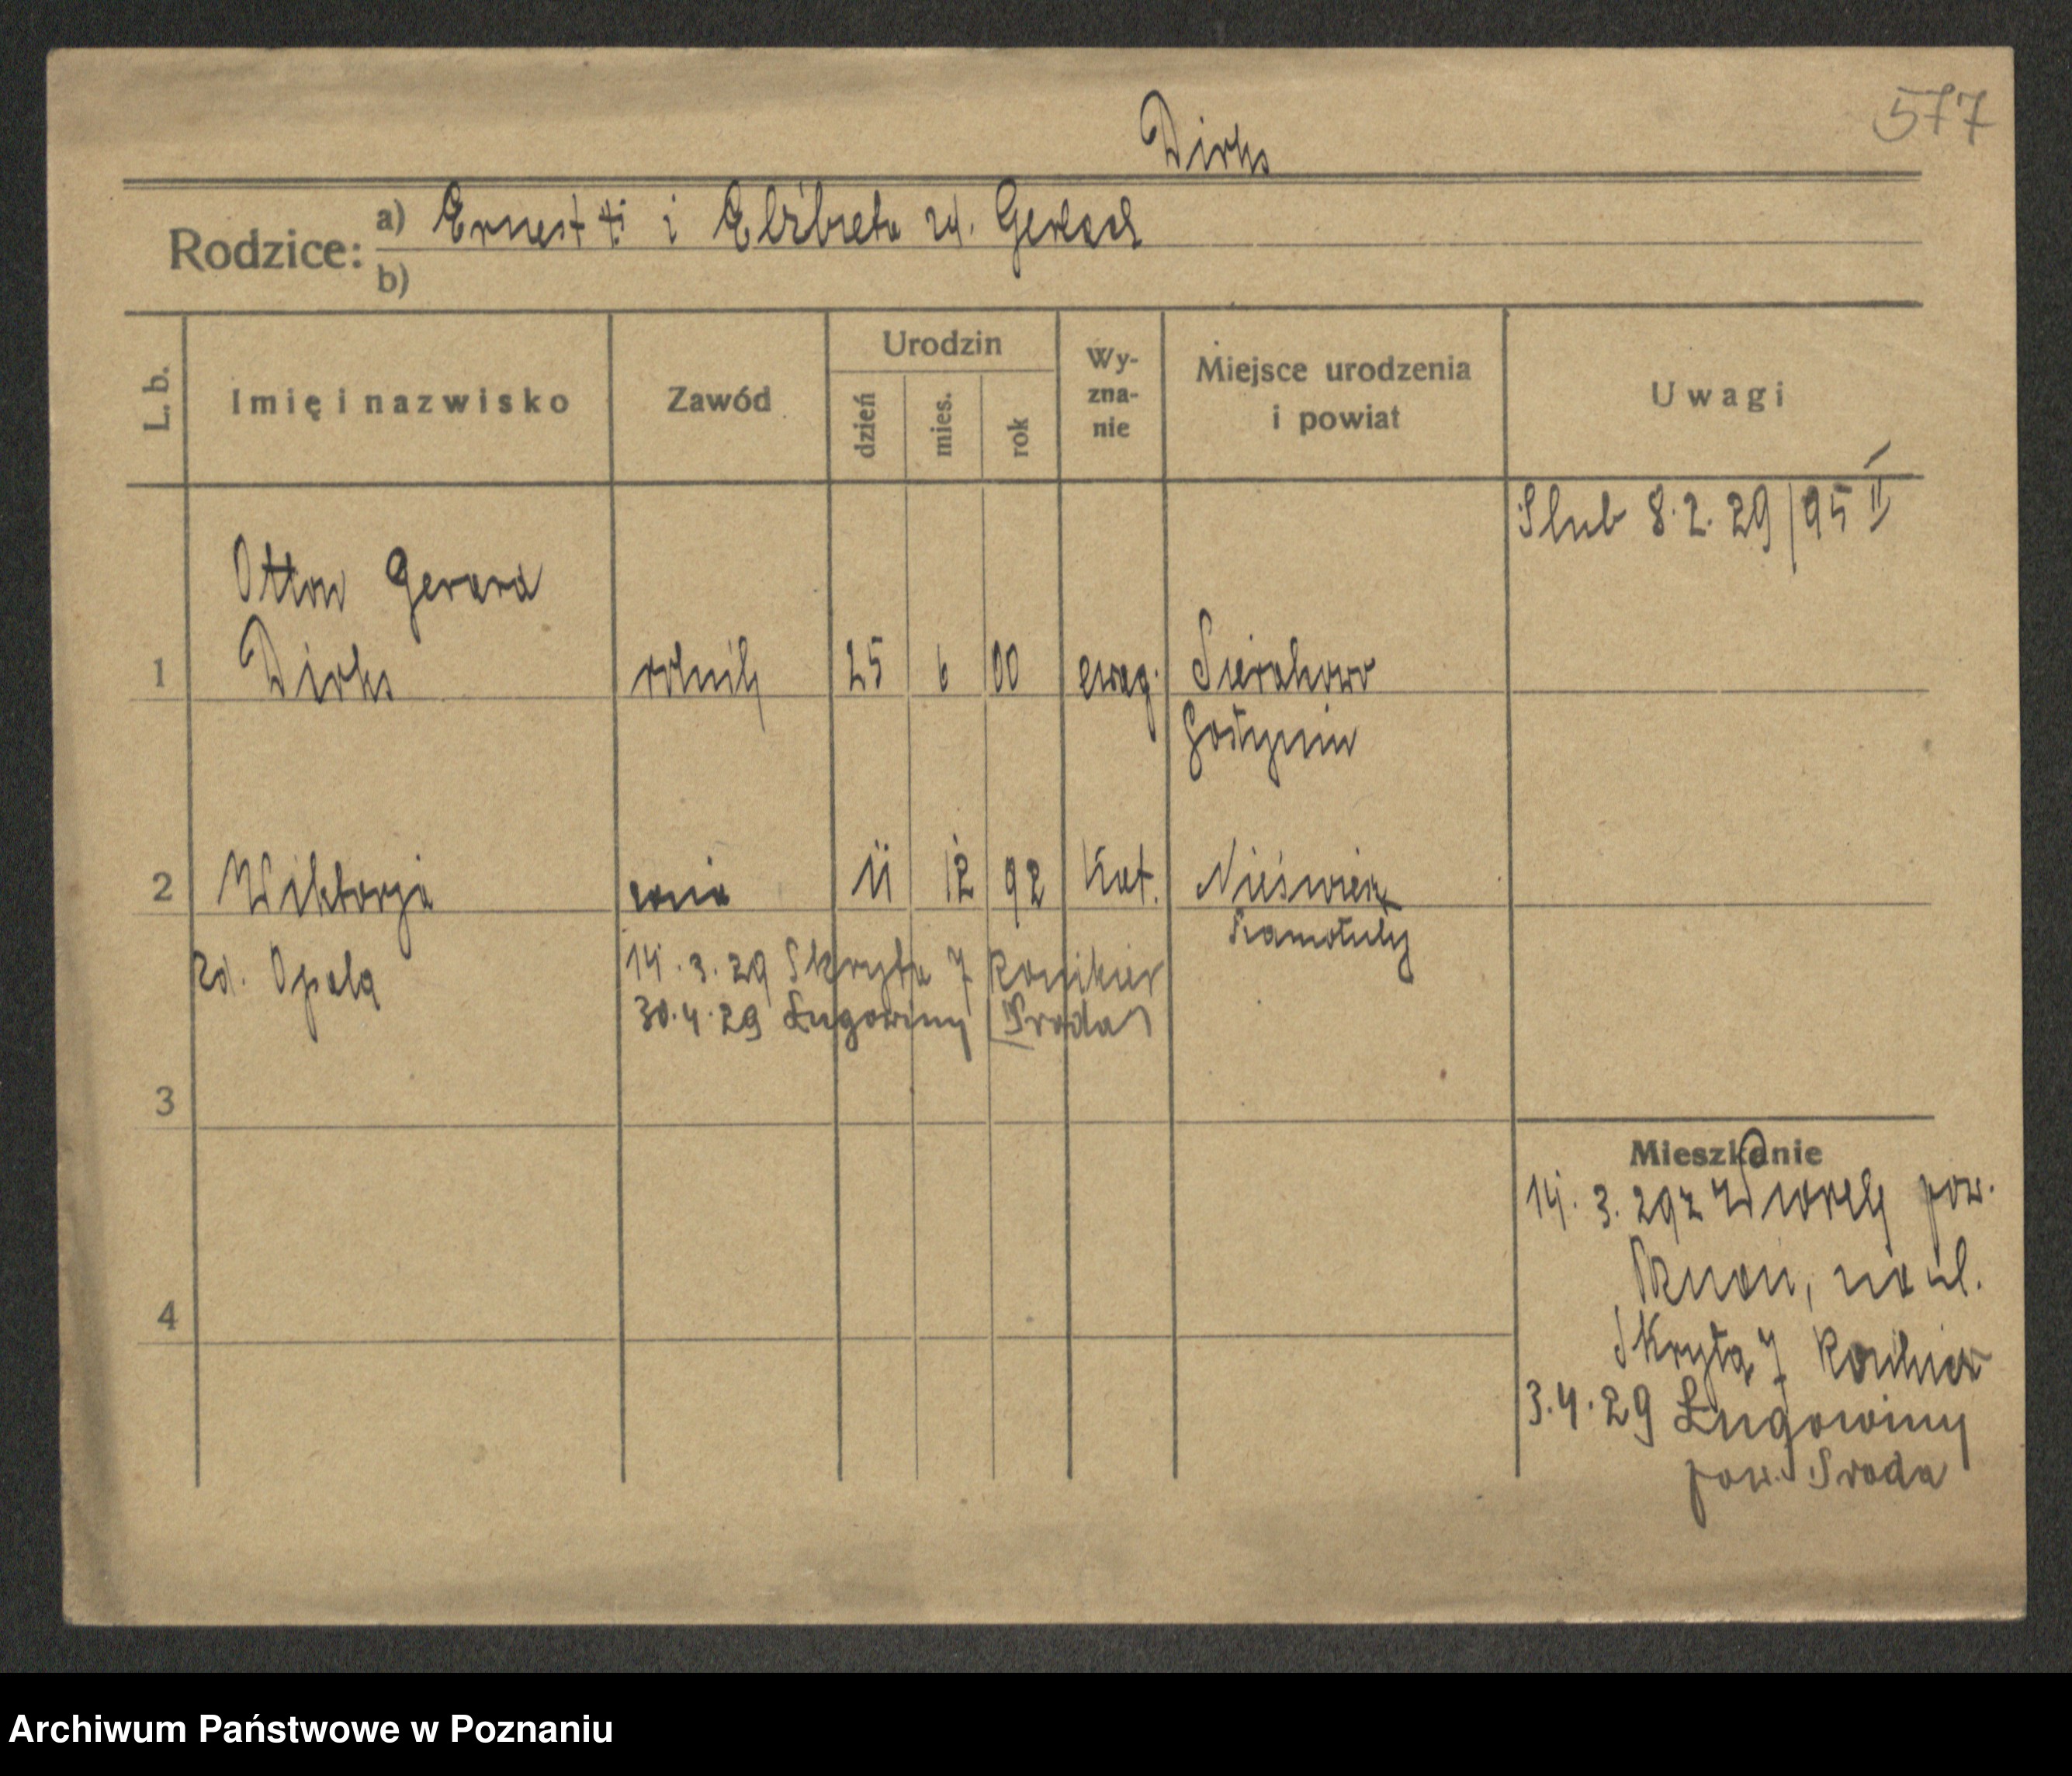 577
Dirks
Rodzice: a) Ernest i Elżbieta zd. Gerlach
b)
L. b.
Imię i nazwisko
Zawód
Urodzin
dzień
mies.
rok
Wy-
zna-
nie
Miejsce urodzenia
i powiat
Uwagi
Slub 8.2.29/95 II
Otton Gerard
1 Dirks rolnik 25 6 00 ewag. Sierakowo
Gostynin
2 Wiktorja 11 12 92 Kat.
Szamotuły
zd. Opala
14.3.29 Skryta 7
30.4.29 Ługowiny Sroda
3
Mieszkanie
14.3.29 z Wiorek pow.
Poznań, na ul.
Skryta 7
4
3.4.29 Ługowiny
pow. Sroda
Archiwum Państwowe w Poznaniu